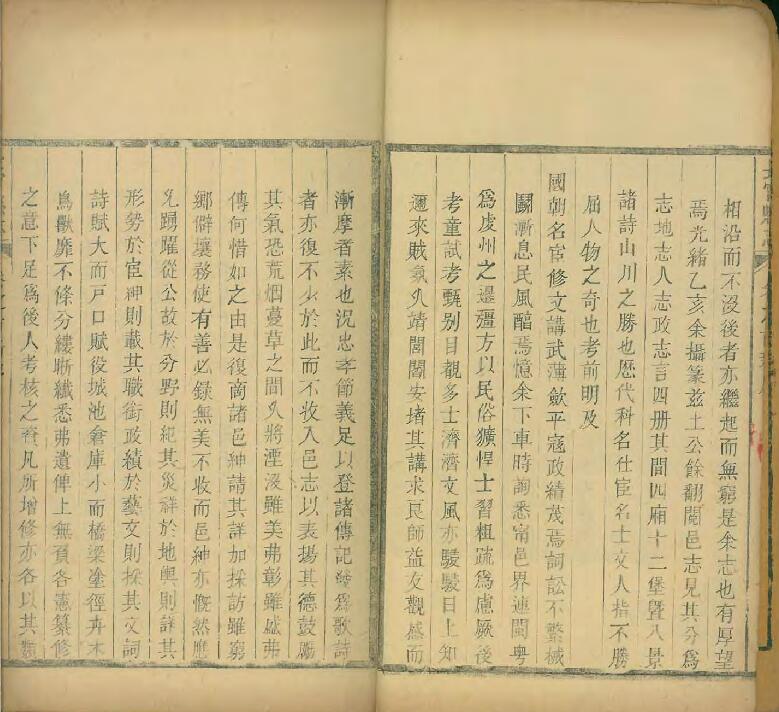 相沿而不沒後者亦繼起而無窮是余志也有厚望
焉光緒乙亥余攝篆茲土公餘翻閱邑志見其分爲
志地志人志政志言四册其間四廂十二堡暨八景
諸詩山川之勝也歷代科名仕宦名士文人指不勝
屈人物之奇也考前明及
國朝名宦修文講武薄歛平寇政績茂焉詞訟不繁械
鬭漸息民風醕焉憶余下車時詢悉甯邑界連閩粤
爲虔州之邊疆方以民俗獷悍士習粗疏爲慮厥後
考童試考甄别目觀多士濟濟文風亦駸駸日上知
邇來賊氛久靖閭閻安堵其講求良師益友觀感而
漸摩者素也況忠孝節義足以登諸傳記發爲歌詩
者亦復不少於此而不收入邑志以表揚其德鼓勵
其氣恐荒烟蔓草之間久將湮沒雖美弗彰雖盛弗
傳何惜如之由是復商諸邑紳請其詳加採訪雖窮
鄉僻壤務使有善必録無美不收而邑紳亦慨然應
允踴躍從公故於分野則紀其災祥於地輿則詳其
形勢於宦紳則載其職銜政績於藝文則採其文詞
詩賦大而戸口賦役城池倉庫小而橋梁塗徑卉木
鳥獸靡不條分縷晰纖悉弗遺俾上無負各憲纂修
之意下足爲後人考核之資凡所增修亦各以其類